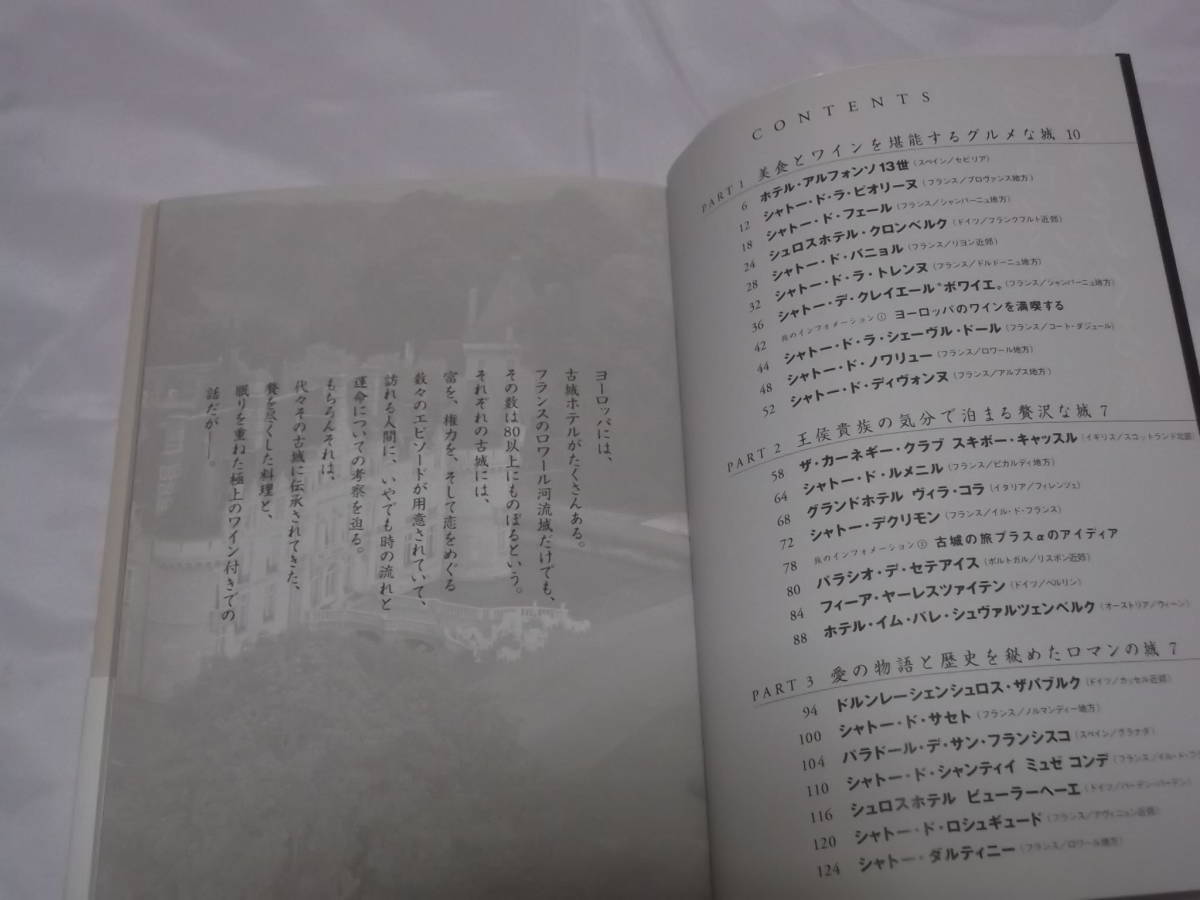 ヨーロッパには、
古城ホテルがたくさんある。
フランスのロワール河流域だけでも、
その数は80以上にものぼるという。
それぞれの古城には、
富を、権力を、そして恋をめぐる
数々のエピソードが用意されていて、
訪れる人間に、いやでも時の流れと
運命についての考察を迫る。
もちろんそれは、
代々その古城に伝承されてきた、
贅を尽くした料理と、
眠りを重ねた極上のワイン付きでの
話だが——。
CONTENTS
PART 1 美食とワインを堪能するグルメな城 10
6 ホテル・アルフォンソ13世(スペイン/セビリア)
12 シャトー・ド・ラ・ピオリーヌ(フランス/プロヴァンス地方)
18 シャトー・ド・フェール(フランス/シャンパーニュ地方)
24 シュロスホテル・クロンベルク(ドイツ/フランクフルト近郊)
28 シャトー・ド・バニョル(フランス/リヨン近郊)
32 シャトー・ド・ラ・トレンヌ(フランス/ドルドーニュ地方)
36 シャトー・デ・クレイエール"ボワイエ。(フランス/シャンパーニュ地方)
42 旅のインフォメーション① ヨーロッパのワインを満喫する
44 シャトー・ド・ラ・シェーヴル・ドール(フランス/コート・ダジュール)
48 シャトー・ド・ノワリュー(フランス/ロワール地方)
52 シャトー・ド・ディヴォンヌ(フランス/アルプス地方)
PART 2 王侯貴族の気分で泊まる贅沢な城 7
58 ザ・カーネギー・クラブ スキボー・キャッスル(イギリス/スコットランド北部)
64 シャトー・ド・ルメニル(フランス/ピカルディ地方)
68 グランドホテル ヴィラ・コラ(イタリア/フィレンツェ)
72 シャトー・デクリモン(フランス/イル・ド・フランス)
78 旅のインフォメーション② 古城の旅プラスαのアイディア
80 パラシオ・デ・セテアイス(ポルトガル/リスボン近郊)
84 フィーア・ヤーレスツァイテン(ドイツ/ベルリン)
88 ホテル・イム・パレ・シュヴァルツェンベルク(オーストリア/ウィーン)
PART 3 愛の物語と歴史を秘めたロマンの城 7
94 ドルンレーシェンシュロス・ザバブルク(ドイツ/カッセル近郊)
100 シャトー・ド・サセト(フランス/ノルマンディー地方)
104 パラドール・デ・サン・フランシスコ(スペイン/グラナダ)
110 シャトー・ド・シャンティイ ミュゼ コンデ(フランス/イル・ド・フ
116 シュロスホテル ビューラーヘーエ(ドイツ/バーデン・バーデン)
120 シャトー・ド・ロシュギュード(フランス/アヴィニョン近郊)
124 シャトー・ダルティニー(フランス/ロワール地方)